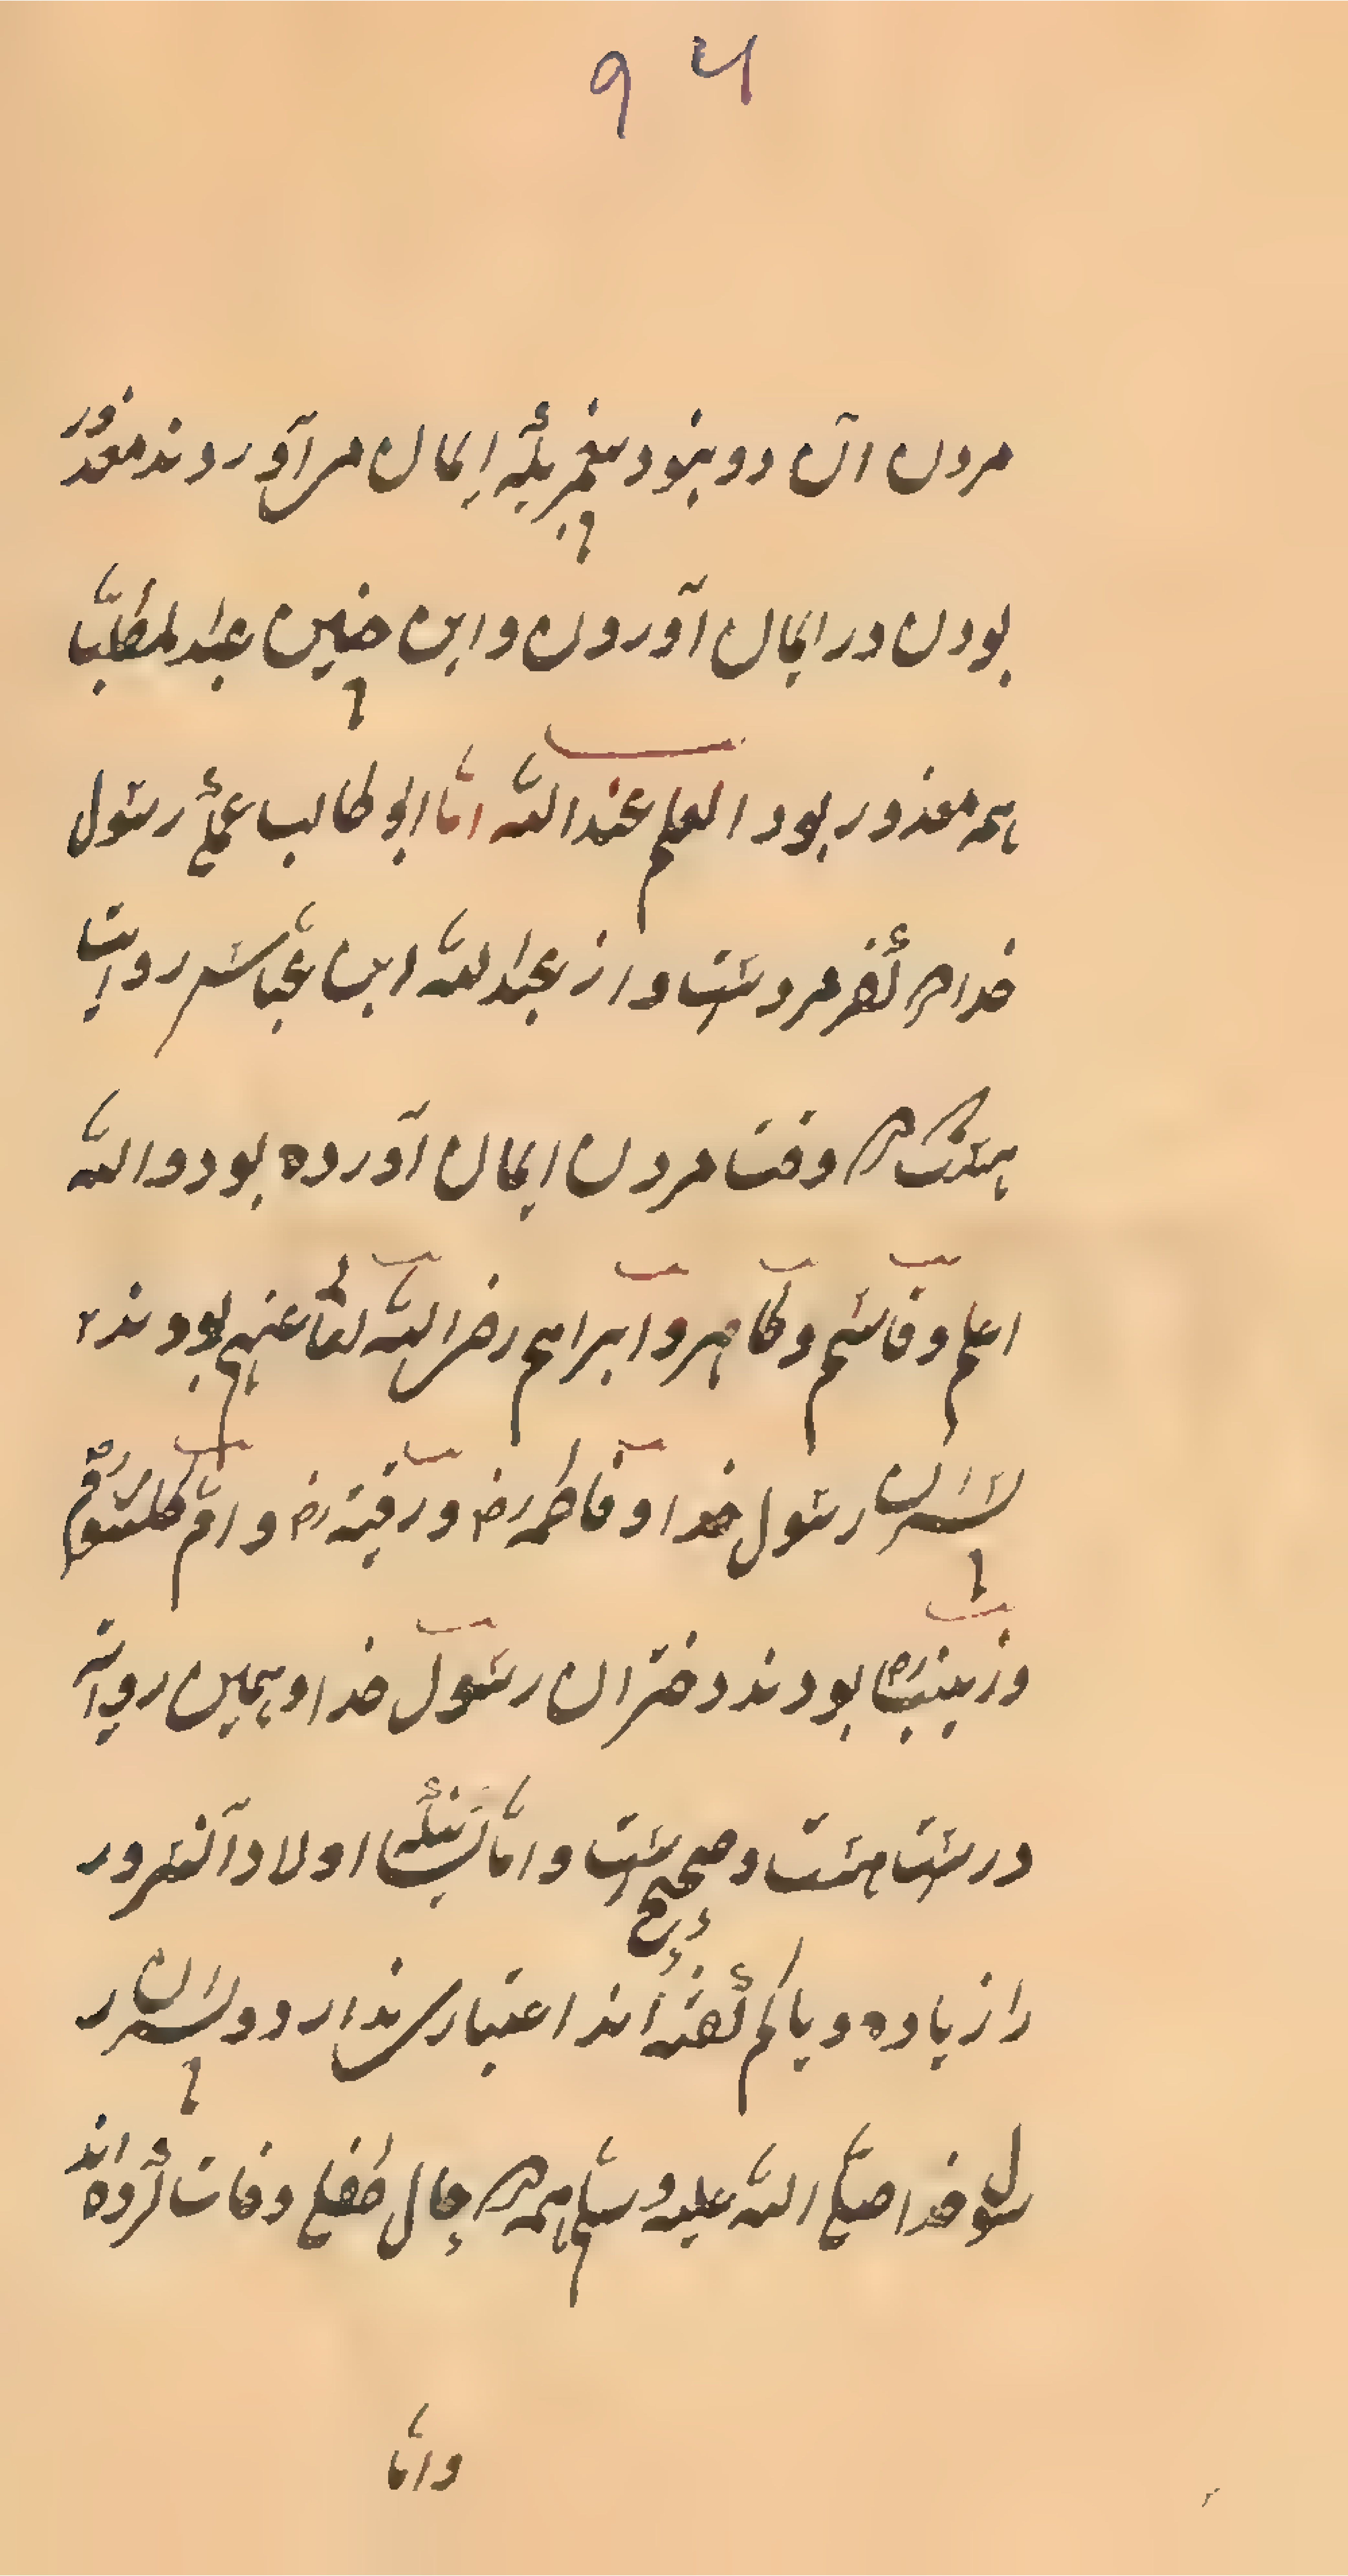 ۹۴
مردن آن دو نبود پیغمبر بلکه ایمان می آوردند معذور
بودن در ایمان آوردن و این چنین عبدالمطلب با
همه معذور بود العلم عند الله اما ابو طالب عم رسول
خدا در کفر مرد ست و از عبدالله ابن عباس روایت
هست که در وقت مردن ایمان آورده بود والله
اعلم و قاسم و طاهر و ابراهیم رضی الله تعا عنهم بودند
پسران رسول خدا و فاطمه رض و رقیه رض و ام کلثوم رض
و زینب رض بودند دختران رسول خدا و همین روایة
درست هست و صحیح ست و اما اولاد آنسرور
را زیاده و یا کم گفته اند اعتباری ندارد و پسران ر
سول خدا صلی الله علیه و سلم همه در حال طفلی وفات کرده اند
و اما